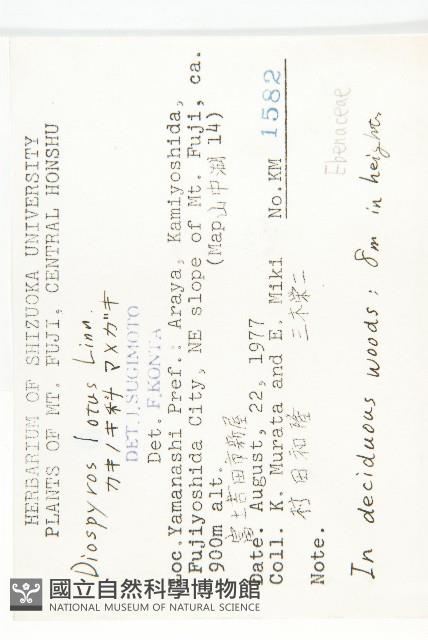 HERBARIUM OF SHIZUOKA UNIVERSITY
PLANTS OF MT. FUJI, CENTRAL HONSHU
Diospyros lotus Linn.
カキノキ科 マメガキ
DET.J.SUGIMOTO
Det. F.KONTA
Loc.Yamanashi Pref.: Araya, Kamiyoshida,
Fujiyoshida City, NE slope of Mt. Fuji, ca.
900m alt. (Map山中湖 14)
富士吉田市新屋
Date. August, 22, 1977
Coll. K. Murata and E. Miki No.KM 1582
村田和隆 三木栄二
Note.
Ebenaceae
In deciduous woods; 8m in height.
國立自然科學博物館
NATIONAL MUSEUM OF NATURAL SCIENCE